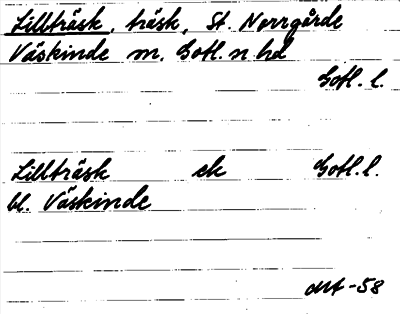 Lillträsk, träsk, St. Norrgårde
Väskinde m. Gotl. n. hd
Gotl. l.
Lillträsk ek Gotl. l.
bl. Väskinde
-58